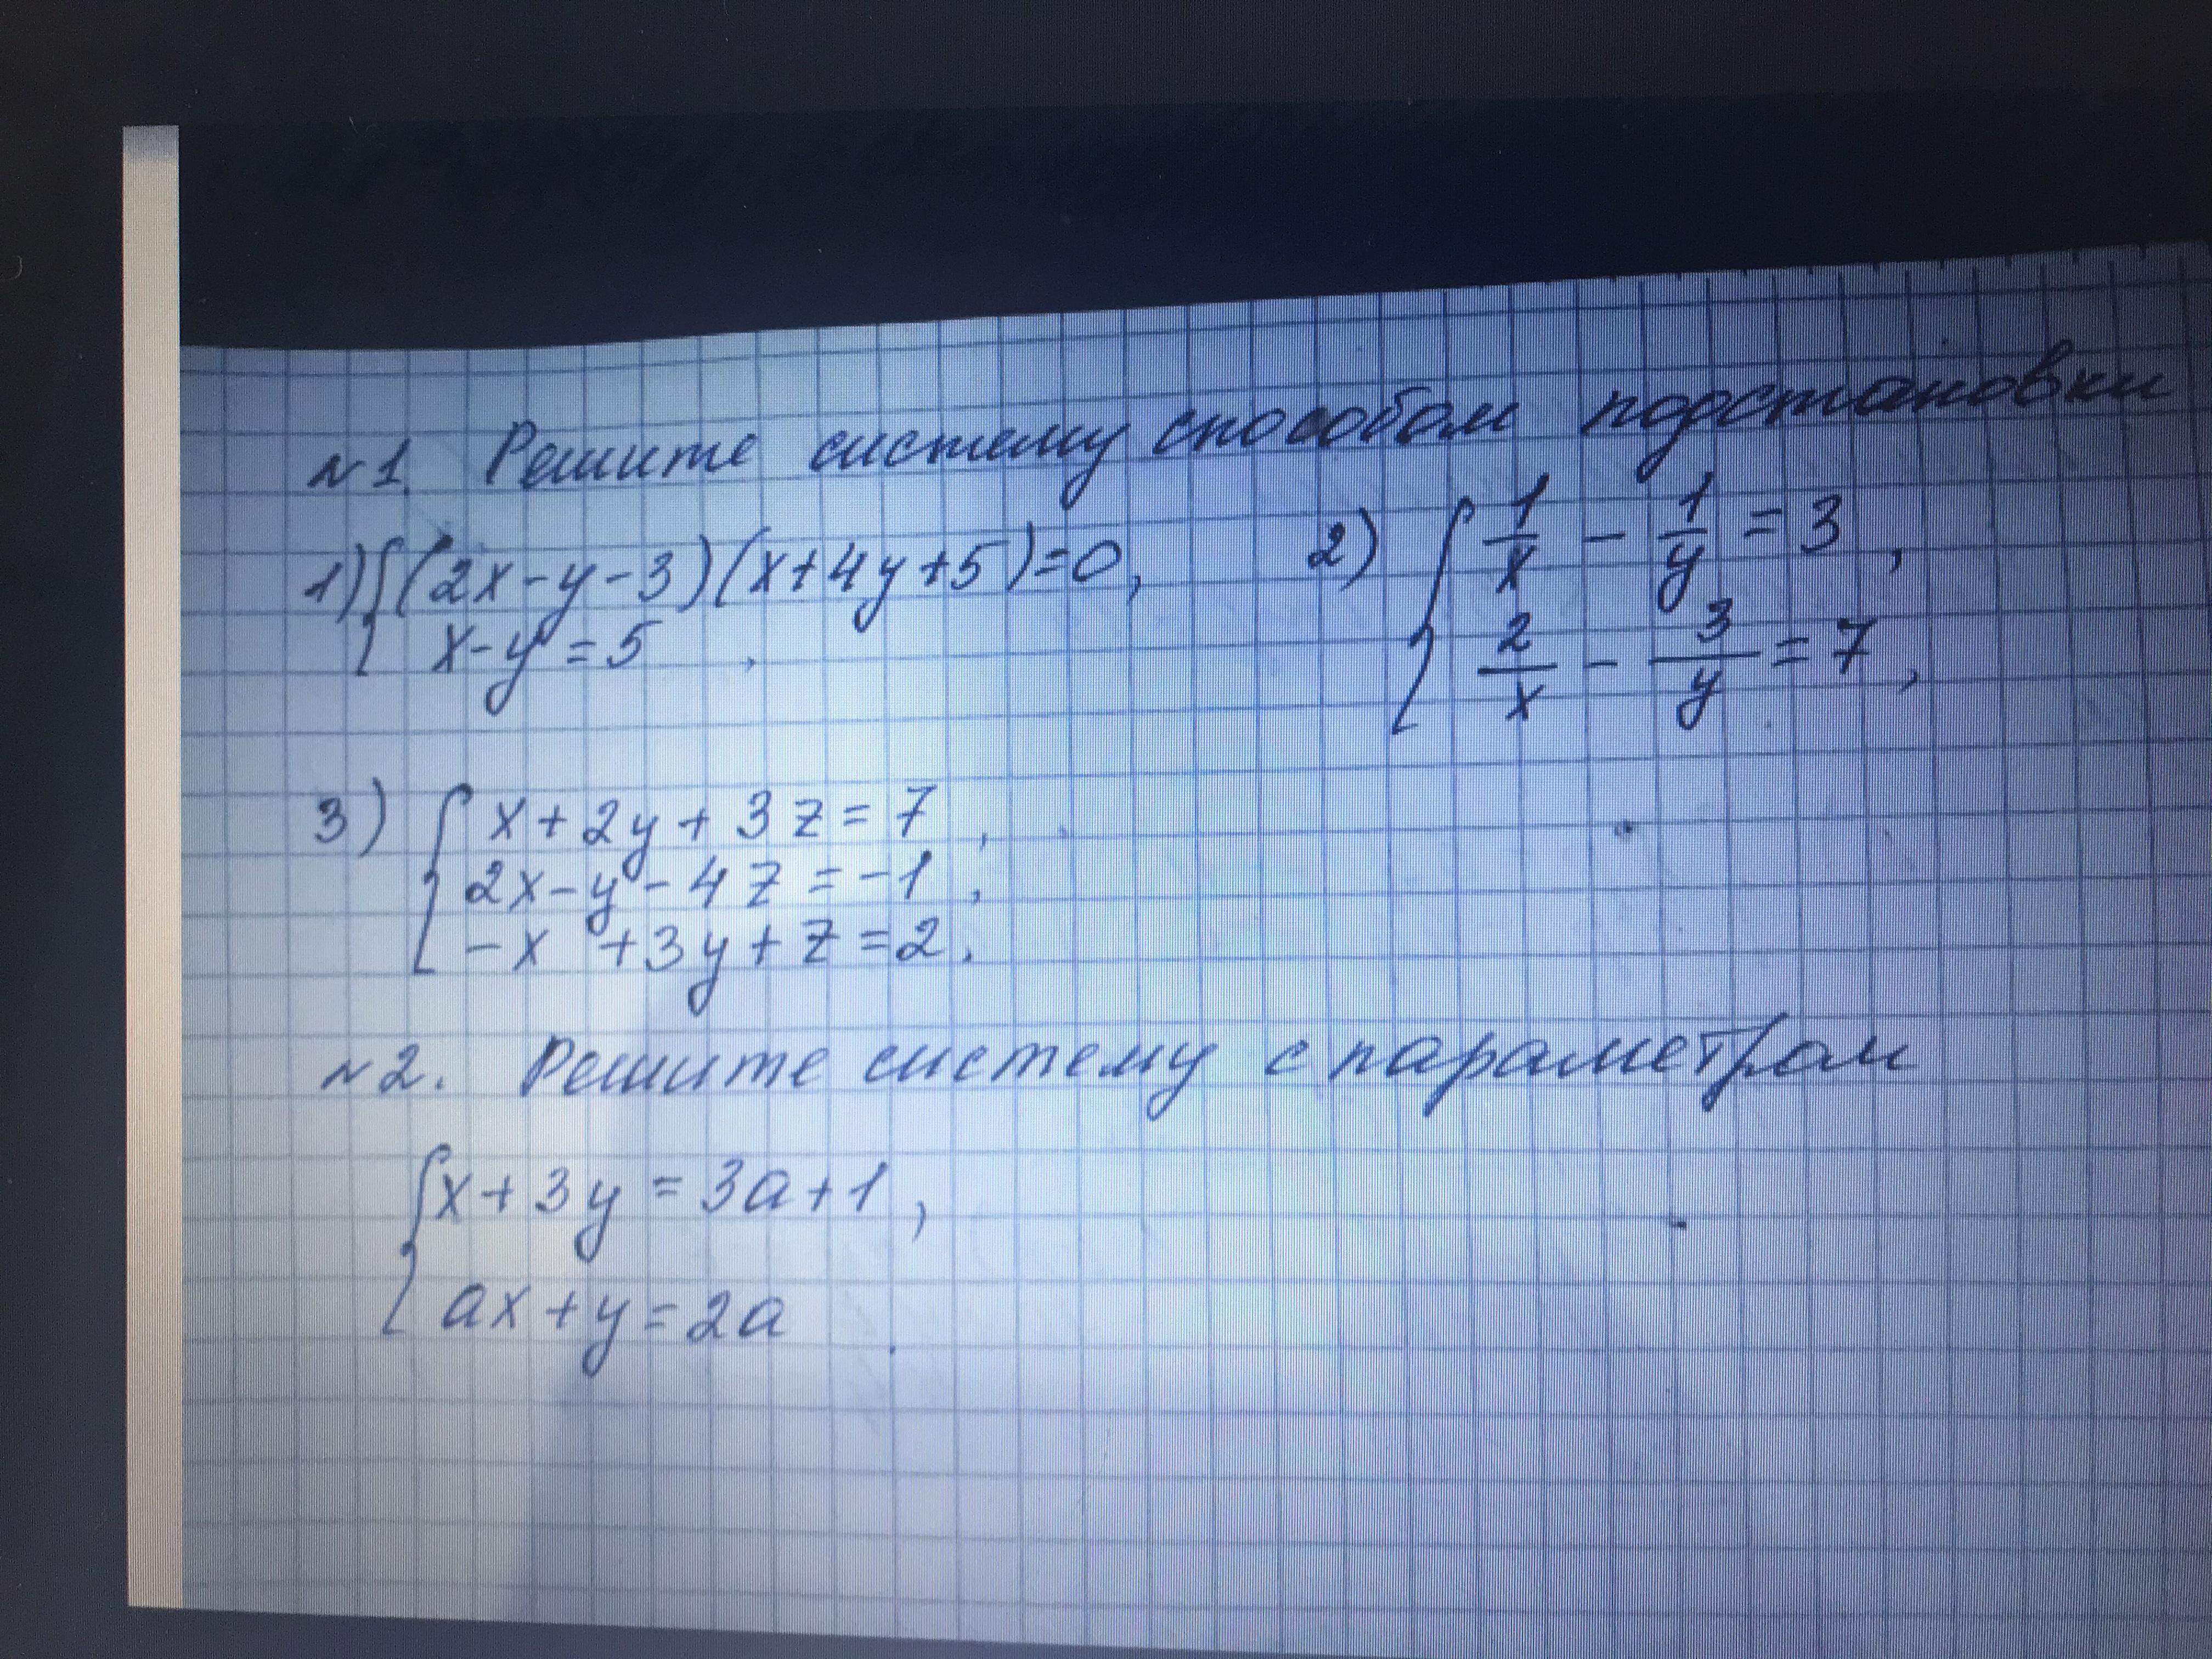 №1. Решите систему способом подстановки
1) { (2x-y-3)(x+4y+5)=0,
x-y=5,
2) { 1/x - 1/y = 3,
2/x - 3/y = 7,
3) { x+2y+3z=7,
2x-y-4z=-1,
-x+3y+z=2.
№2. Решите систему с параметром
{ x+3y=3a+1,
ax+y=2a.